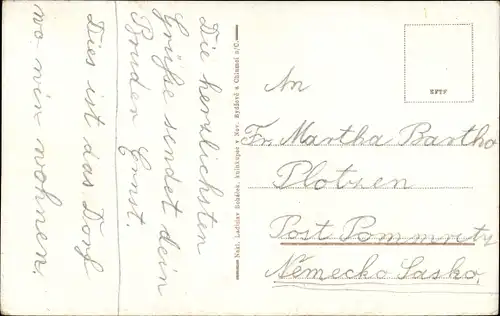 Die herzlichsten
Grüße sendet dein
Bruder Ernst.
Dies ist das Dorf
wo wir wohnen.
Nakl. Ladislav knihkupec v Nov. Bydžově a Chlumci n/C.
An
Fr. Martha Bartho
Plotzen
Post Pommritz
Německo Sasko.